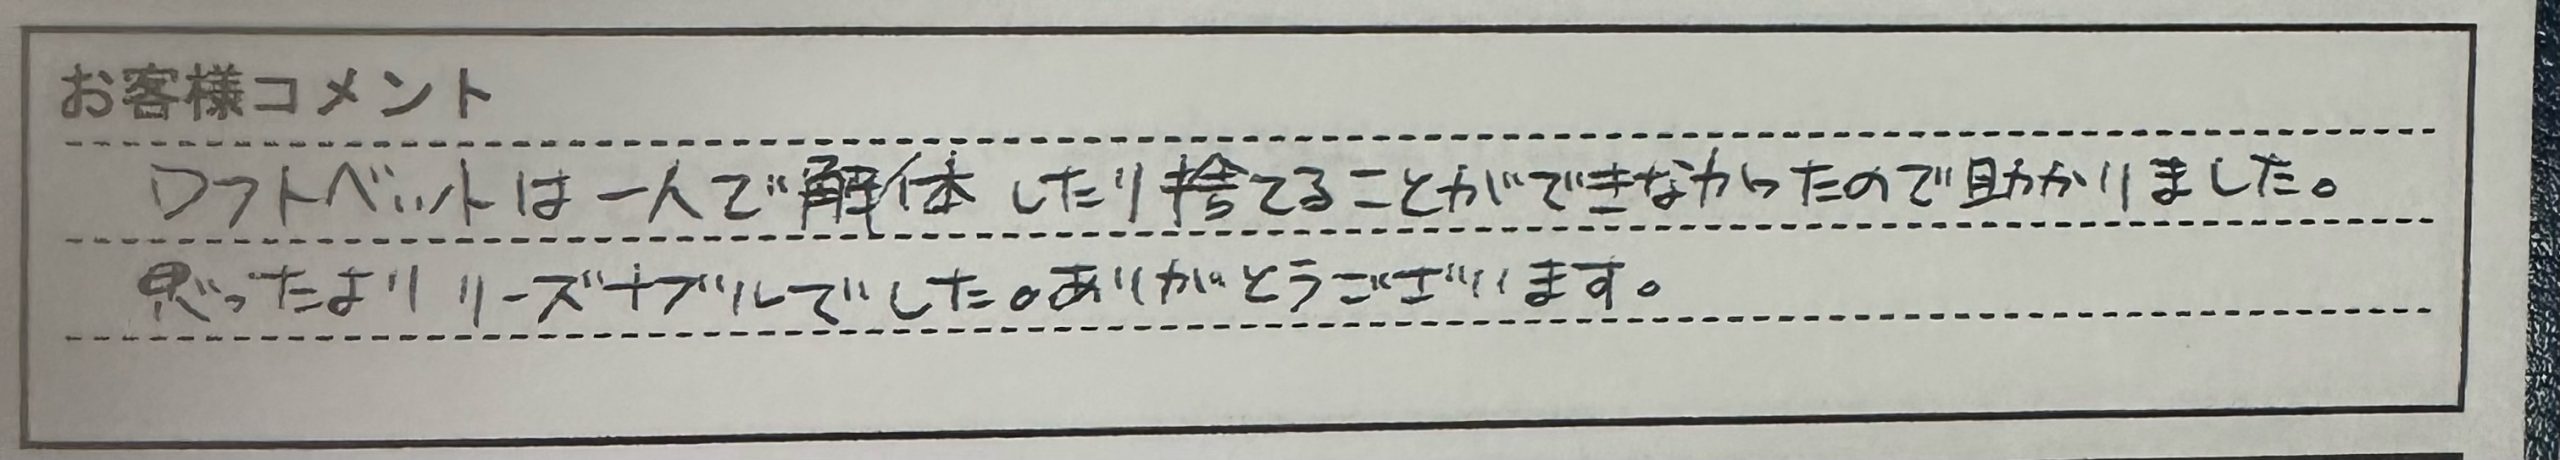 お客様コメント
ロフトベットは一人で解体したり捨てることができなかったので助かりました。
思ったよりリーズナブルでした。ありがとうございます。